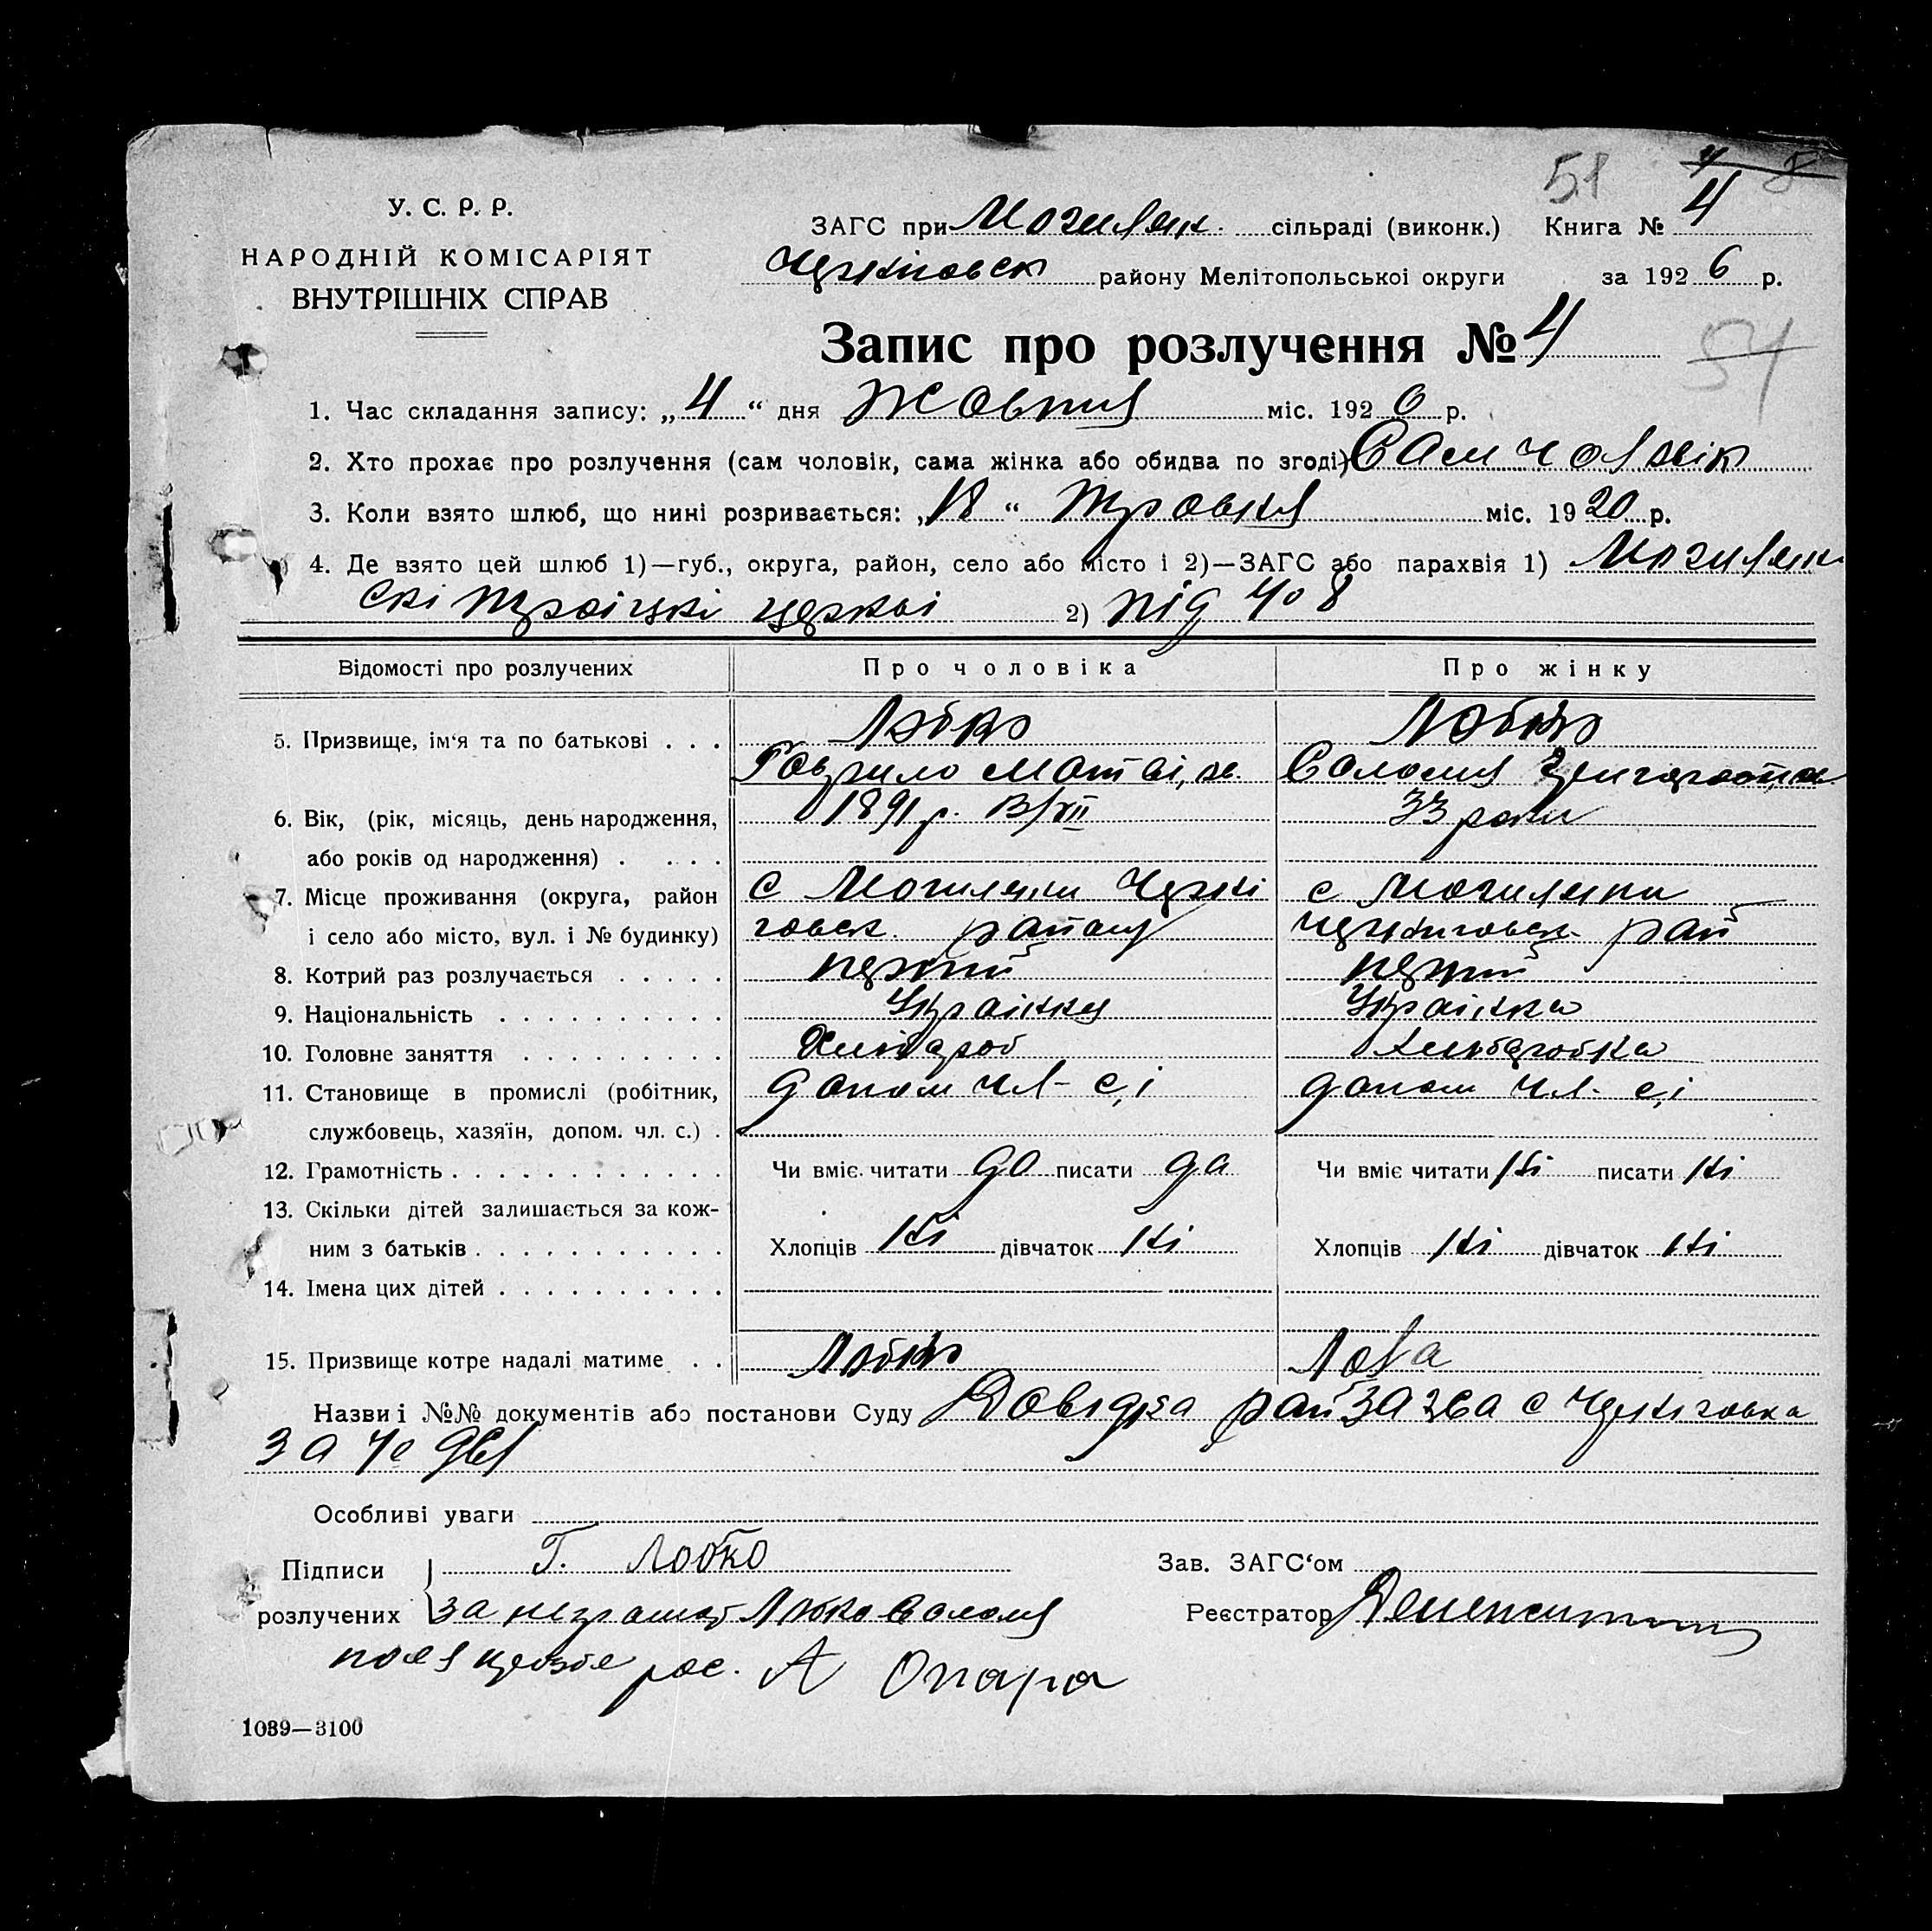 51 4
У. С. Р. Р.
НАРОДНІЙ КОМІСАРІЯТ
ВНУТРІШНІХ СПРАВ
ЗАГС при Могилянк. сільраді (виконк.) Книга № 4
району Мелітопольської округи за 1926 р.
Запис про розлучення № 4
54
1. Час складання запису: „4“ дня Жовтня міс. 1926 р.
2. Хто прохає про розлучення (сам чоловік, сама жінка або обидва по згоді) Сам чоловік
3. Коли взято шлюб, що нині розривається: „18“ Травня міс. 1920 р.
4. Де взято цей шлюб 1)—губ., округа, район, село або місто і 2)—ЗАГС або парахвія 1) Могилянк
скі Троіцкі церкві 2) під Чо 8
Відомості про розлучених Про чоловіка Про жінку
5. Призвище, ім‘я та по батькові . . . Лобко Лобко
Гаврило Матві, ов. Саломия
6. Вік, (рік, місяць, день народження, 1891 р. 13/XII 33 роки
або років од народження) . . . .
7. Місце проживання (округа, район с Могиляни Черні с Могиляни
і село або місто, вул. і № будинку) говск. району Черниговск. рай
8. Котрий раз розлучається . . . . . перший перший
9. Національність . . . . . . . . . . Украінка
10. Головне заняття . . . . . . . . . Хлібороб Хліборобка
11. Становище в промислі (робітник, допом чл- с,і допом чл- с,і
службовець, хазяїн, допом. чл. с.) .
12. Грамотність . . . . . . . . . . . . Чи вміє читати да писати да Чи вміє читати ні писати ні
13. Скільки дітей залишається за кож-
ним з батьків . . . . . . . . . . . Хлопців ні дівчаток ні Хлопців ні дівчаток ні
14. Імена цих дітей . . . . . . . . . .
15. Призвище котре надалі матиме . . Лобко Лова
Назви і №№ документів або постанови Суду Довідка райЗАГСа с Чернговка
за Чо 961
Особливі уваги
Підписи Г. Лобко Зав. ЗАГС‘ом
розлучених за неграмот Лобко Саломя Реєстратор
рос. А Опара
1039—3100